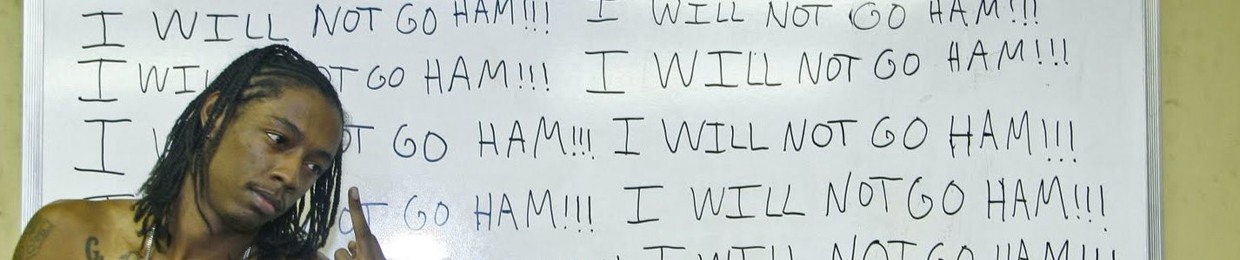 I WILL NOT GO HAM!!! I WILL NOT GO HAM!!!
I WIL OT GO HAM!!! I WILL NOT GO HAM!!!
I OT GO HAM!!! I WILL NOT GO HAM!!!
OT GO HAM!!! I WILL NOT GO HAM!!!
I WILL NOT GO HAM!!!
G